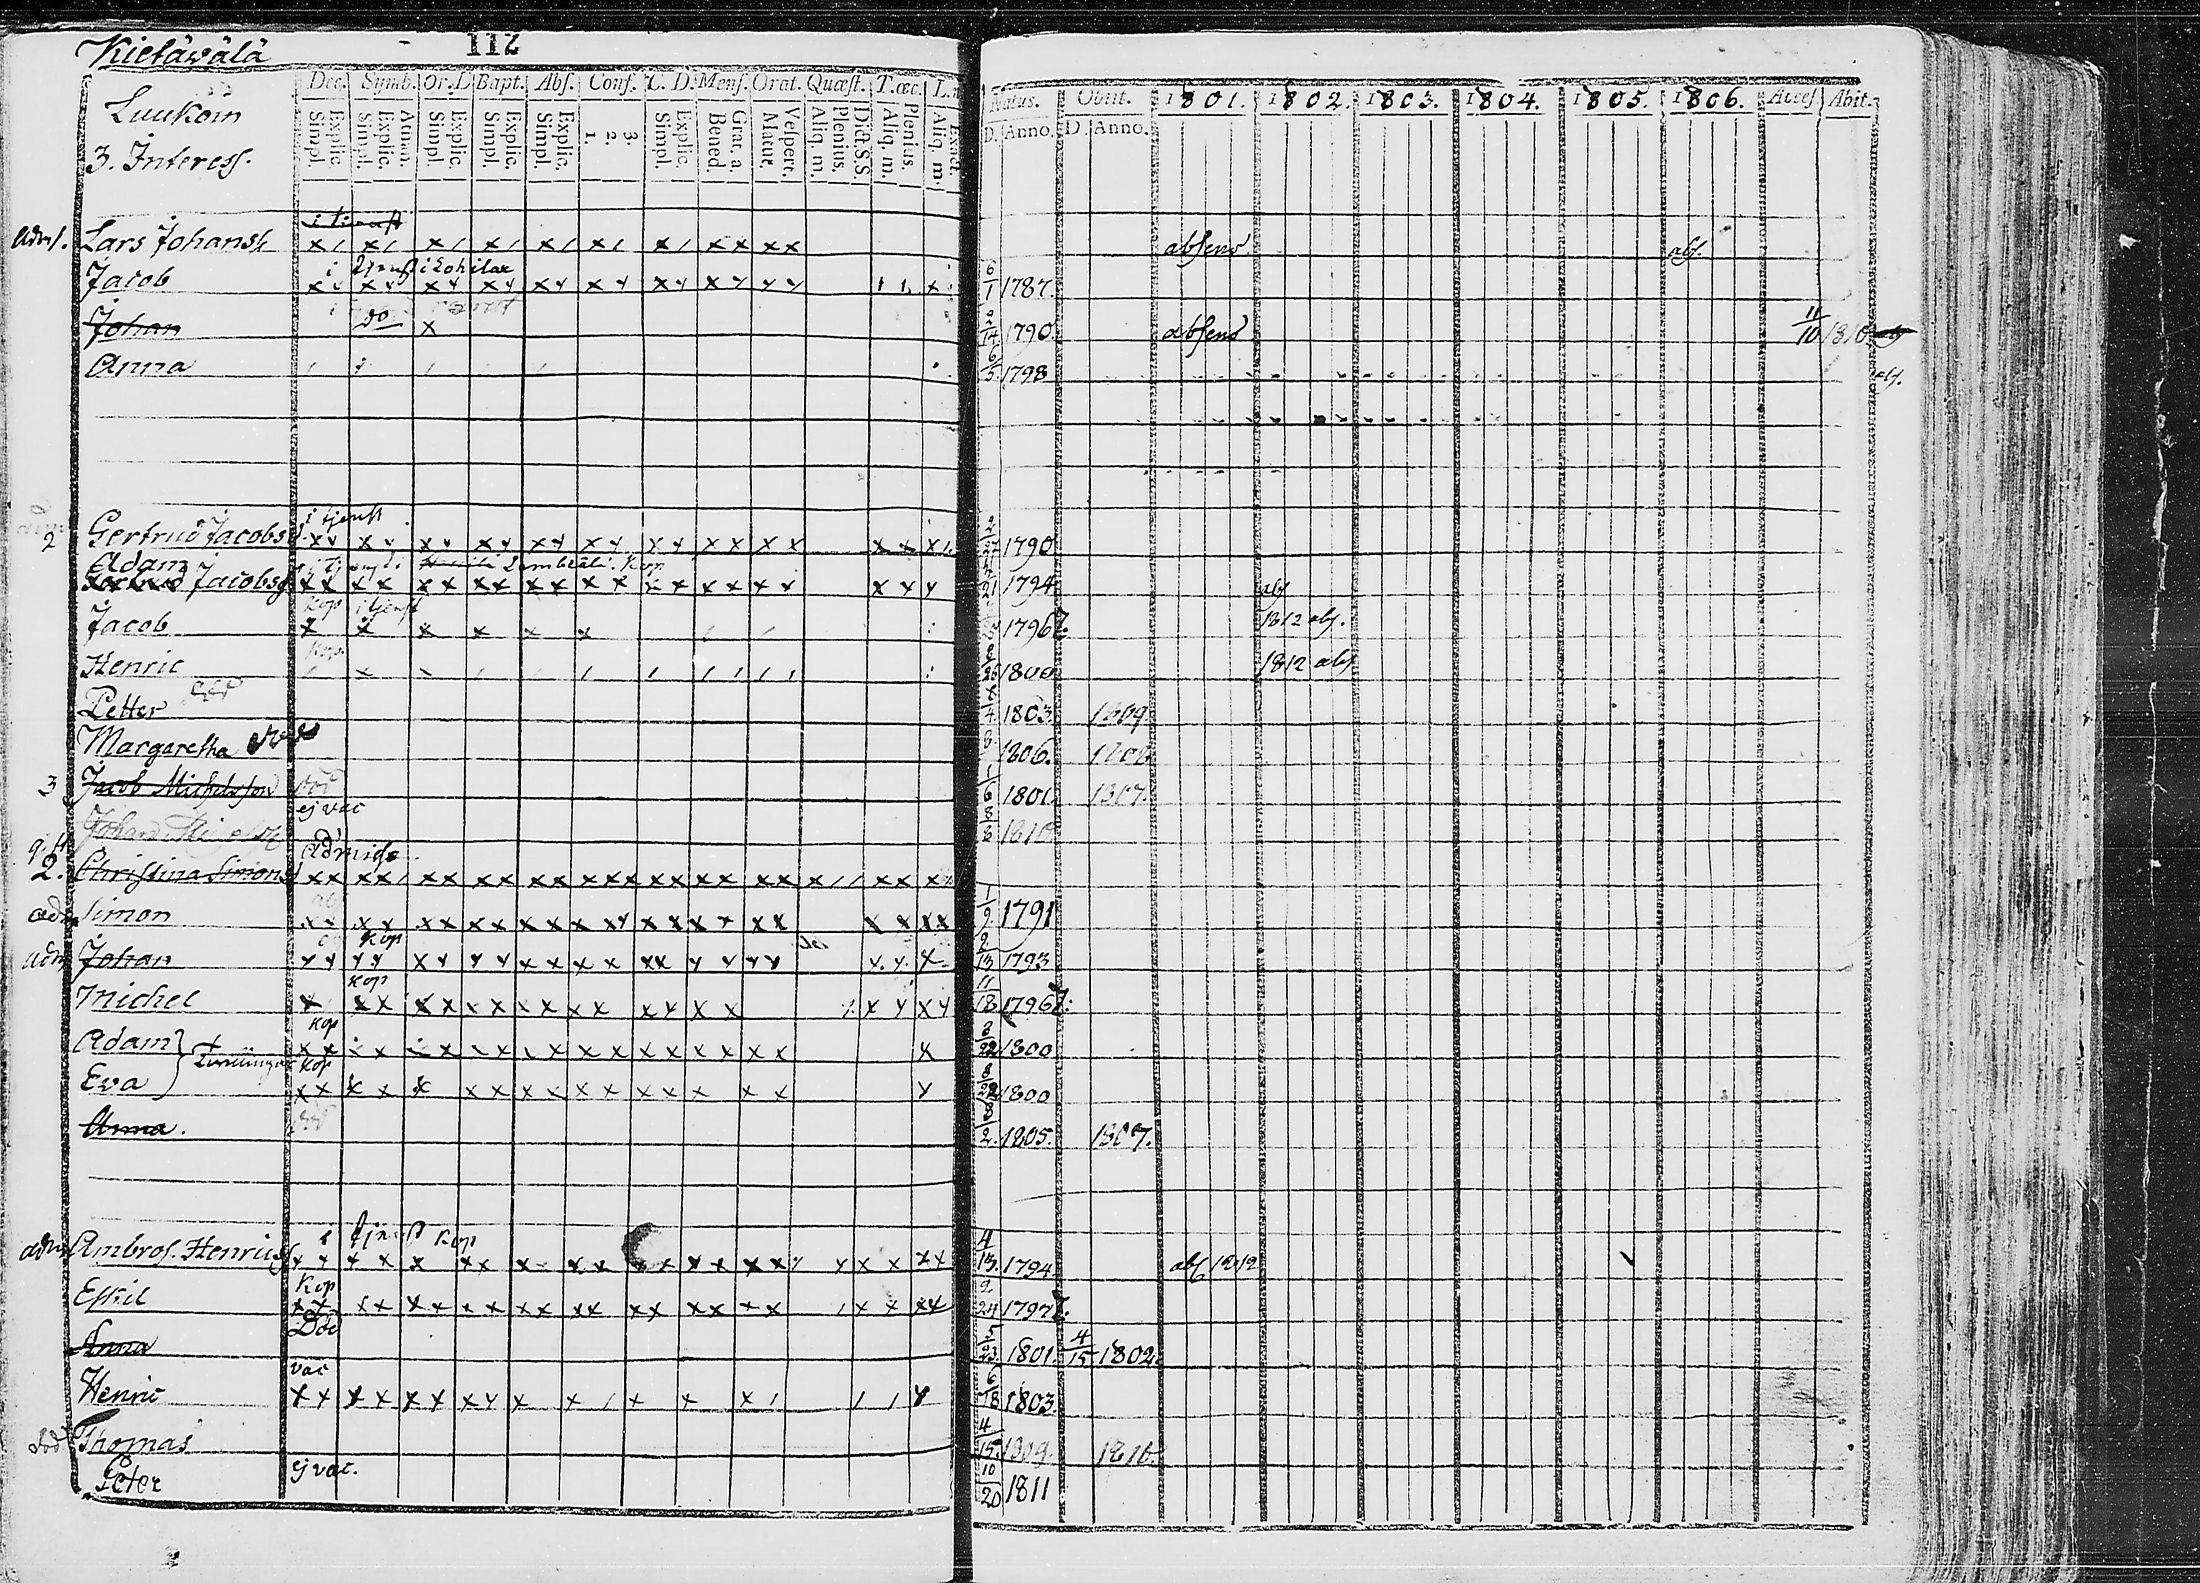 Kietäwälä 112
Luukoin
3. Interess.
Dec. Symb. Or. D. Bapt. Abs. Conf. C. D. Mens. Orat. Quæst. T. œc. L.
Explic. Simpl. Athan. Explic. Simpl. Explic. Simpl. Explic. Simpl. Explic. Simpl. 3. 2. 1. Explic. Simpl. Grat. a. Bened. Vespert. Matut. Dict. S.S. Plenius. Aliq. m. Plenius. Aliq. m. Exact. Aliq. m.
Natus. Obiit. 1801. 1802. 1803. 1804. 1805. 1806. Access. Abit.
D. Anno. D. Anno.
i tienst
adm. Lars Johanss. absens abs.
i tjenst i
Jacob 6/1 1787.
do
Johan 2/14 1790. absens 11/10 1810
Anna 6/5 1798 abs.
i tjenst
2 Gertrud Jacobsd. 2/27 1790
Adam
Jacobss. 21 1794 abs
Kop i tjenst
Jacob 1796 1812 abs.
Kop
Henric 8/26 1800 1812 abs
Petter död 8/4 1803. 1809.
Margaretha död 8 1806. 1808
3 Jacob Michelsson död 1/6 1801. 1807.
ej vac
Johan 8/8 1810.
admiss.
2. Christina Simonsd.
adm Simon 1/9 1791
Kop
adm Johan 2/13 1793
Kop
Michel 11/18 1796
Kop
Adam 8/22 1800
Kop
Eva 8/22 1800
Anna. död 8/2. 1805. 1807.
i tjenst Kop
adm Ambros. Henricss. 4/13. 1794 abs 1812
Kop
Eskil 2/24 1797
Död
Anna 5/23 1801. 4/15 1802.
vac
Henric 6/18 1803.
död Thomas 4/15. 1809. 1810.
Peter ej vac. 10/20 1811